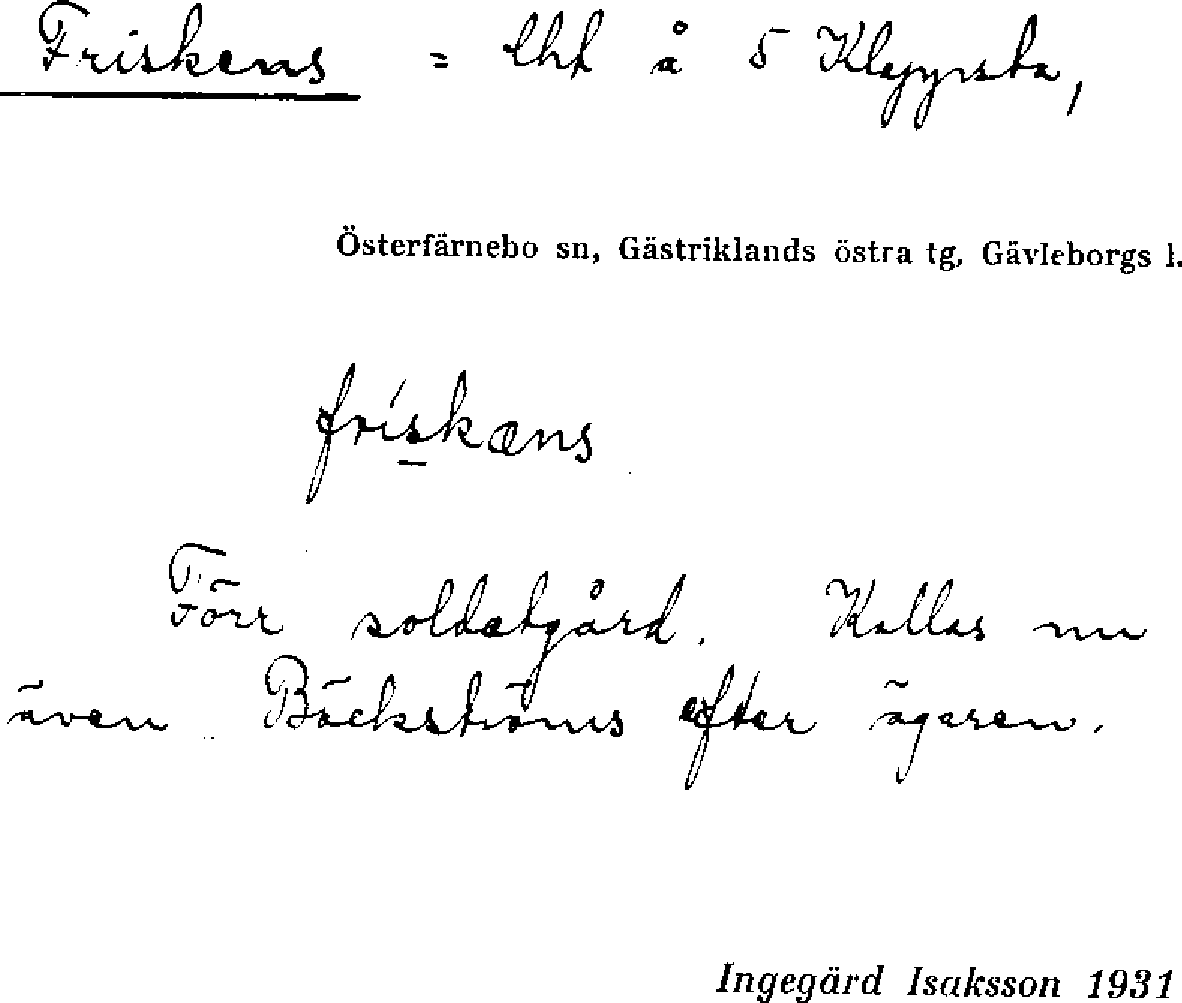 Friskens = lht å 5 Klappsta,
Österfärnebo sn, Gästriklands östra tg, Gävleborgs l.
fri´skæns
Förr soldatgård. Kallas nu
även Bäckströms efter ägaren.
Ingegärd Isaksson 1931